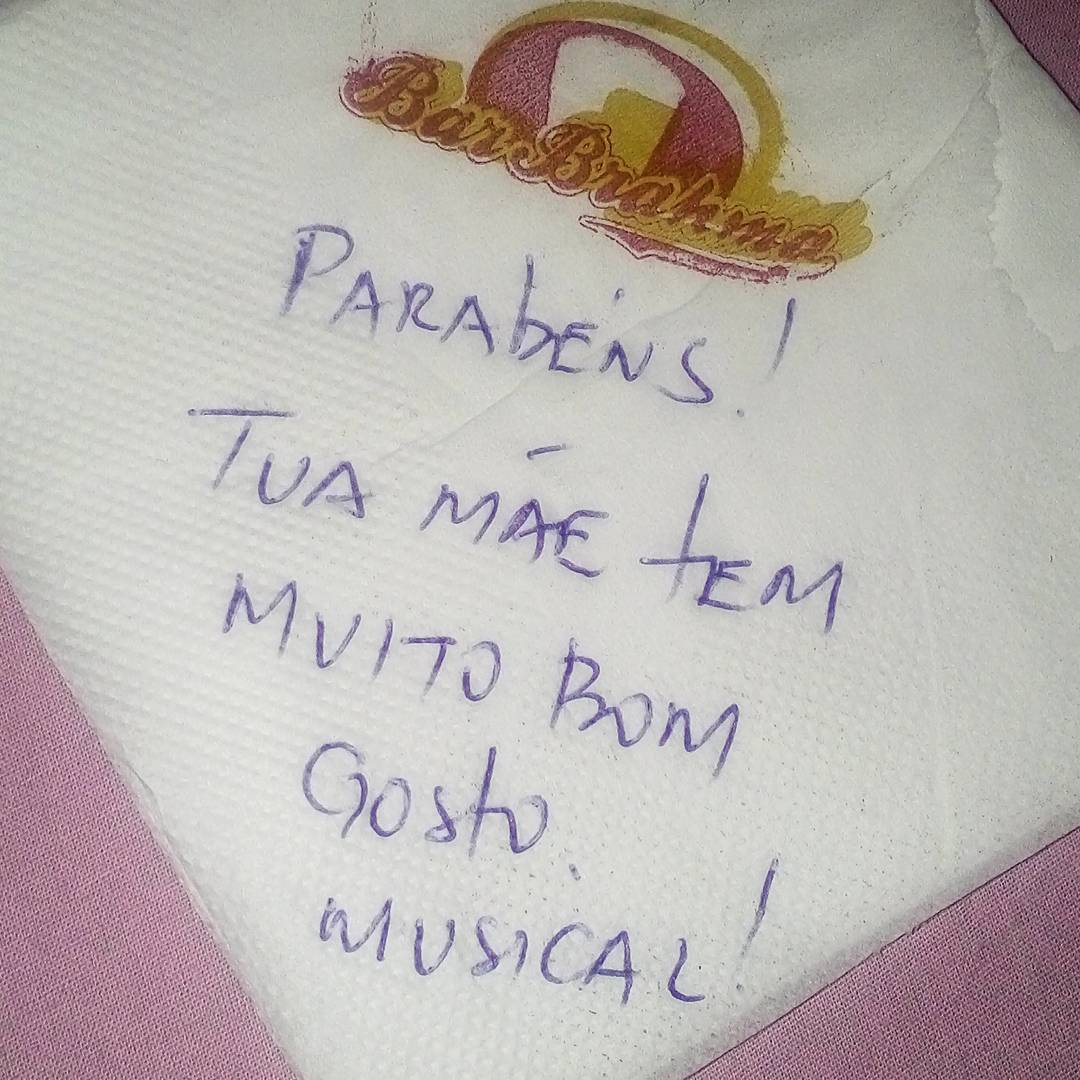 Bar Brahma
PARAbÉNS!
TUA MÃE tEM
MUITO BOM
GOSto.
MUSICAL!